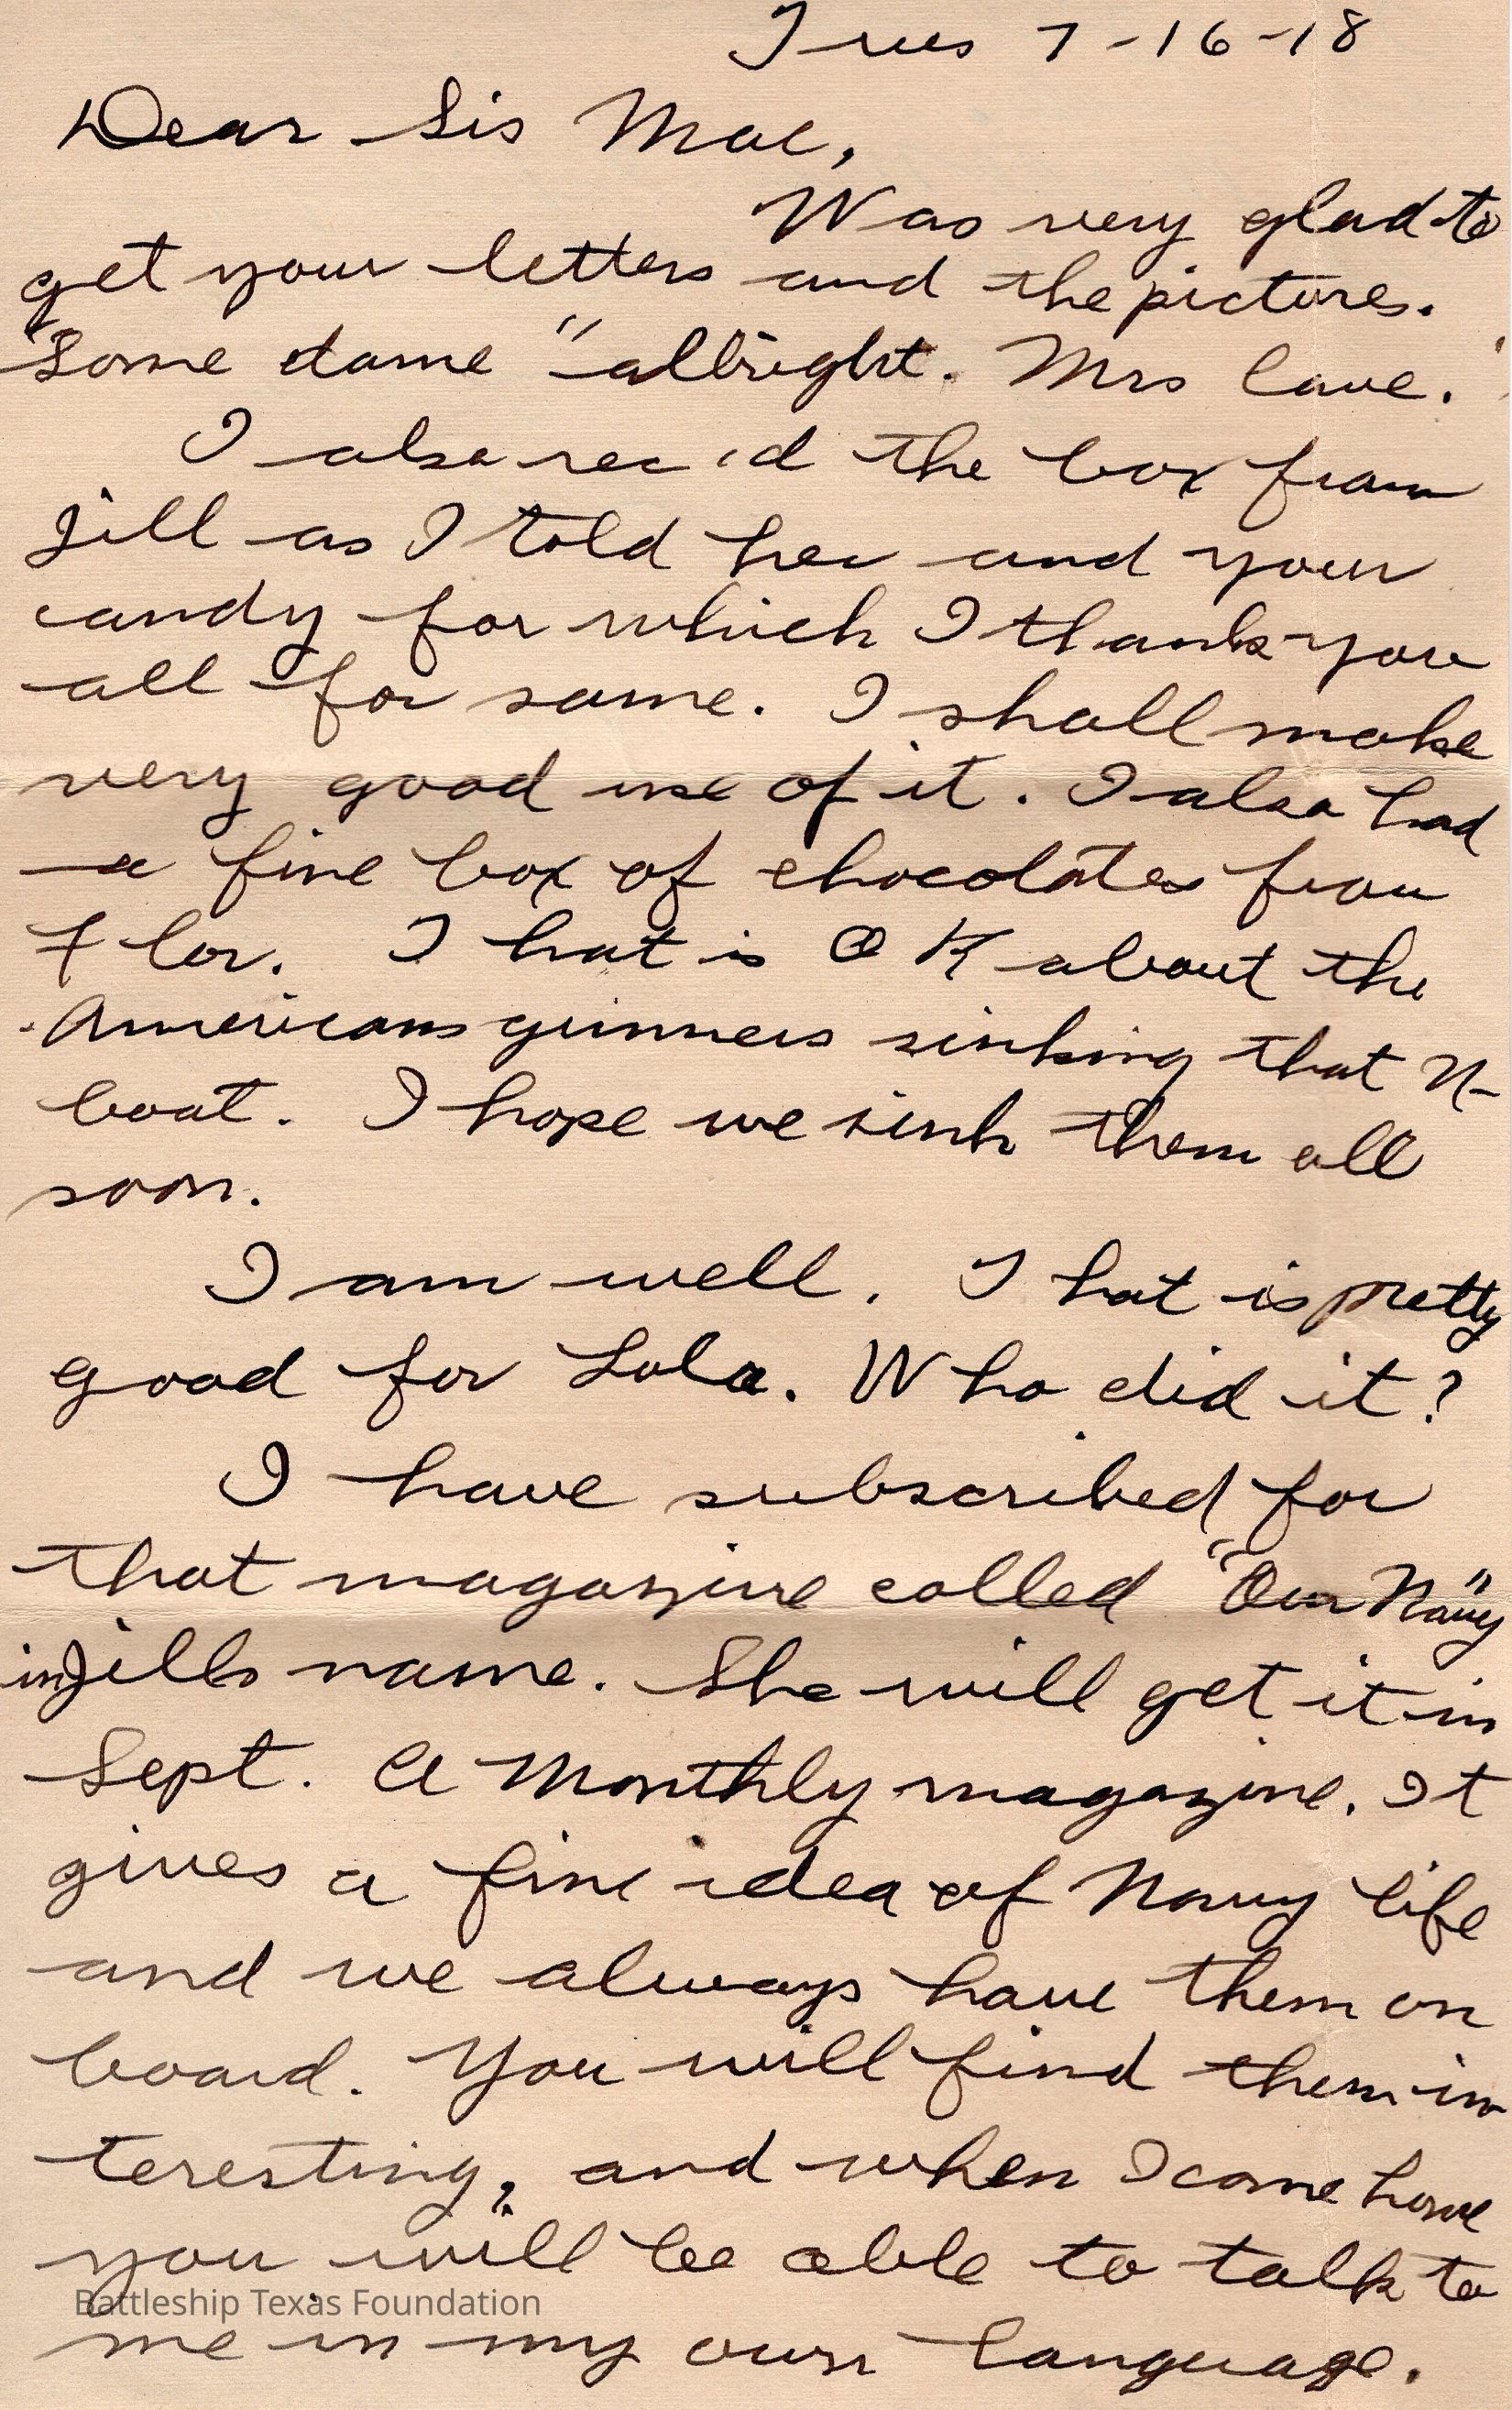 Tues 7-16-18
Dear Sis Mae,
Was very glad to
get your letters and the pictures.
"Some dame" allright. Mrs Cave.
I also rec'd the box from
Jill as I told her and your
candy for which I thank you
all for same. I shall make
very good use of it. I also had
a fine box of chocolates from
Flor. That is OK about the
Americans gunners sinking that U-
boat. I hope we sink them all
soon.
I am well. That is pretty
good for Lola. Who did it?
I have subscribed for
that magazine called "Our Navy"
in Jills name. She will get it in
Sept. A Monthly magazine. It
gives a fine idea of Navy life
and we always have them on
board. You will find them in
teresting, and when I come home
you will be able to talk to
Battleship Texas Foundation
me in my own language.